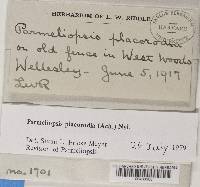 HERBARIUM OF L. W. RIDDLE.
Parmeliopsis placorodia
on old fence in West Woods
Wellesley - June 5, 1917
LWR
Parmeliopsis placorodia (Ach.) Nyl.
Revision of Parmeliopsis
26 July 1979
no. 1701